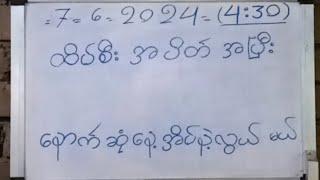 =7=6=2024=(4:30)
ထိပ်စီး အပိတ် အပြီး
နောက်ဆုံနေ့ အိပ်နဲ့လွယ် မယ်